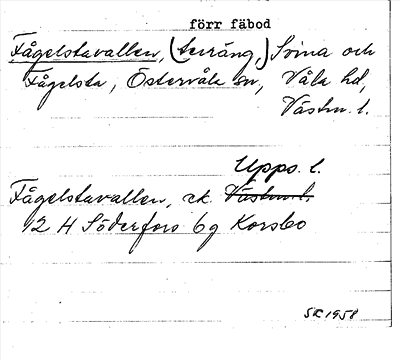 förr fäbod
Fågelstavallen, (terräng,) Svina och
Fågelsta, Östervåla sn, Våla hd,
Västm. l.
Upps. l.
Fågelstavallen, ek. Västm. l.
12 H Söderfors 6g Korsbo
SK 1958